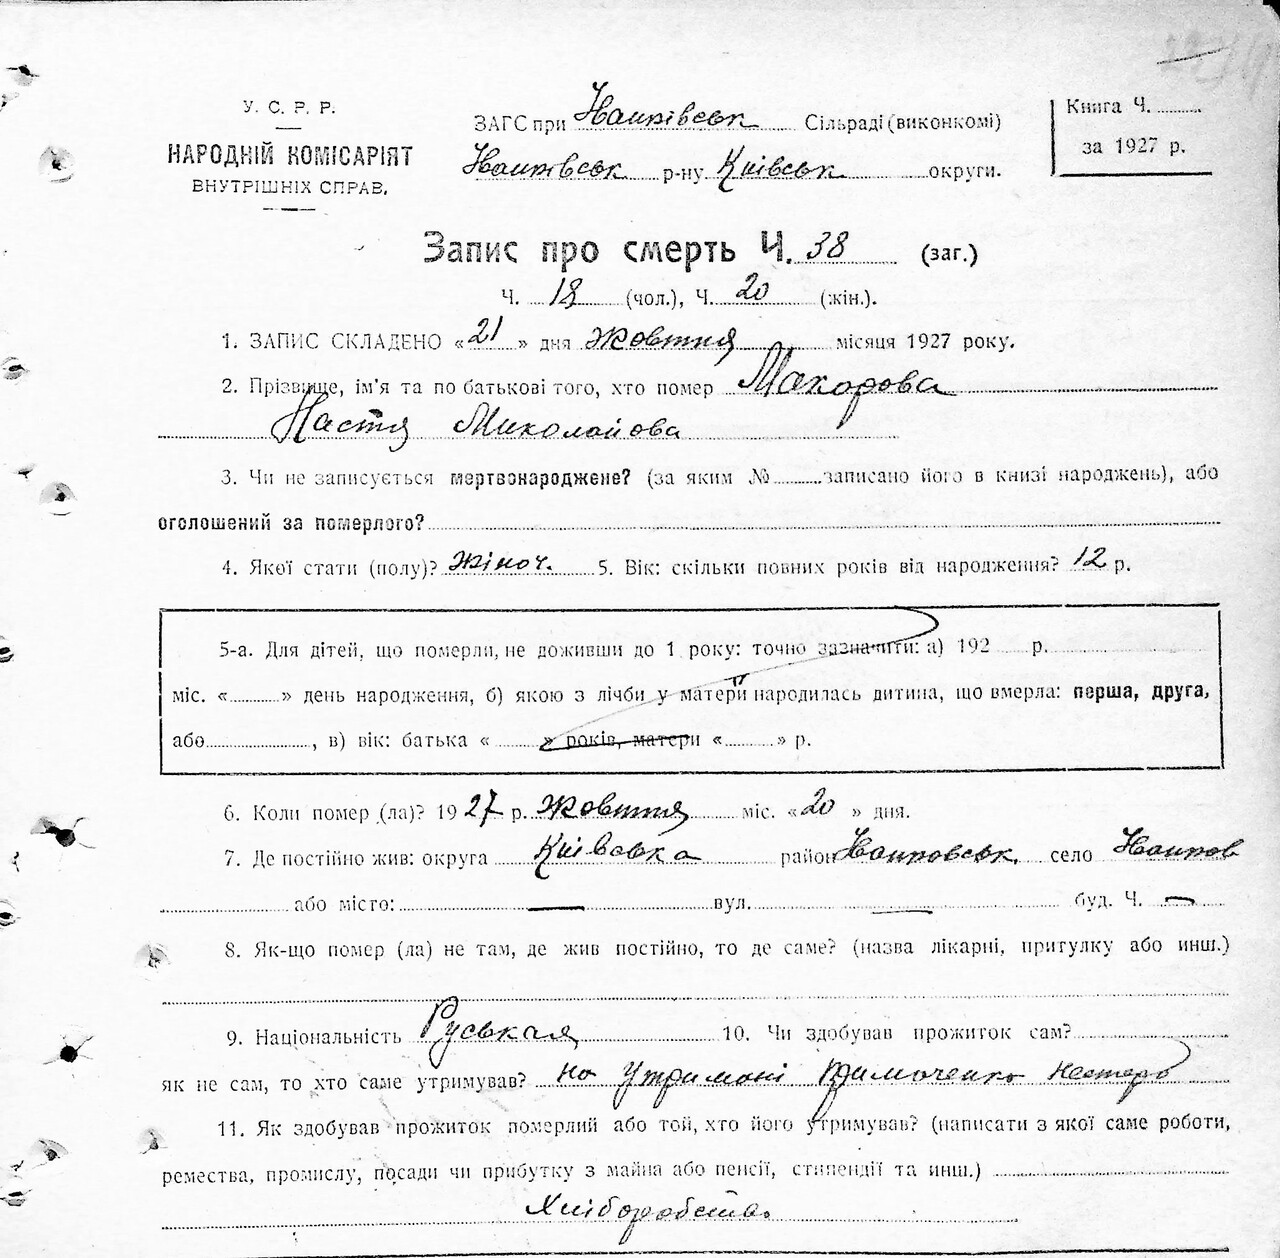 У. С. Р. Р.
НАРОДНІЙ КОМІСАРІЯТ
ВНУТРІШНІХ СПРАВ.
ЗАГС при Сільраді (виконкомі)
р-ну Київськ округи.
Книга Ч.
за 1927 р.
Запис про смерть Ч. 38 (заг.)
Ч. 18 (чол.), Ч. 20 (жін.).
1. ЗАПИС СКЛАДЕНО «21» дня Жовтня місяця 1927 року.
2. Прізвище, ім'я та по батькові того, хто помер Макорова
Настя Миколайова
3. Чи не записується мертвонароджене? (за яким № записано його в книзі народжень), або
оголошений за померлого?
4. Якої стати (полу)? Жіноч. 5. Вік: скільки повних років від народження? 12 р.
5-а. Для дітей, що померли, не доживши до 1 року: точно зазначити: а) 192 р.
міс. « » день народження, б) якою з лічби у матери народилась дитина, що вмерла: перша, друга,
або , в) вік: батька « » років, матери « » р.
6. Коли помер (ла)? 1927 р. Жовтня міс. «20» дня.
7. Де постійно жив: округа Київська район село
або місто: — вул. — буд. Ч. —
8. Як-що помер (ла) не там, де жив постійно, то де саме? (назва лікарні, притулку або инш.)
9. Національність Руськая 10. Чи здобував прожиток сам?
як не сам, то хто саме утримував? на утримані Тимченко Нестеро
11. Як здобував прожиток померлий або той, хто його утримував? (написати з якої саме роботи,
ремества, промислу, посади чи прибутку з майна або пенсії, стипендії та инш.)
Хліборобство